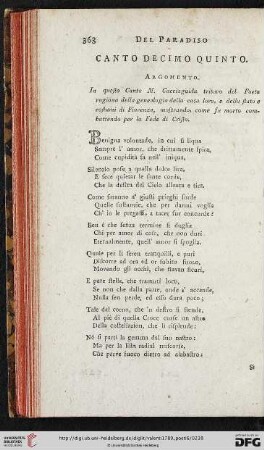 363 DEL PARADISO
CANTO DECIMO QUINTO.
ARGOMENTO.
In questo Canto M. Cacciaguida tritavo del Poeta
ragiona della genealogia della casa loro, e dello stato e
costumi di Fiorenza, mostrando come fu morto com-
battendo per la Fede di Cristo.
Benigna volontade, in cui si liqua
Sempre l' amor, che drittamente spira,
Come cupidità fa nell' iniqua,
Silenzio pose a quella dolce lira,
E fece quietar le sante corde,
Che la destra del Cielo allenta e tira.
Come saranno a' giusti prieghi sorde
Quelle sustanzie, che per darmi voglia
Ch' io le pregassi, a tacer fur concorde?
Ben è che senza termine si doglia
Chi per amor di cosa, che non duri
Eternalmente, quell' amor si spoglia.
Quale per li seren tranquilli, e puri
Discorre ad ora ad or subito fuoco,
Movendo gli occhi, che stavan sicuri,
E pare stella, che tramuti loco,
Se non che dalla parte, onde s' accende,
Nulla sen perde, ed esso dura poco;
Tale dal corno, che in destro si stende,
Al piè di quella Croce corse un astro
Della costellazion, che lì risplende:
Nè si partì la gemma dal suo nastro:
Ma per la lista radial trascorse,
Che parve fuoco dietro ad alabastro:
http://digi.ub.uni-heidelberg.de/diglit/
© Universitätsbibliothek Heidelberg